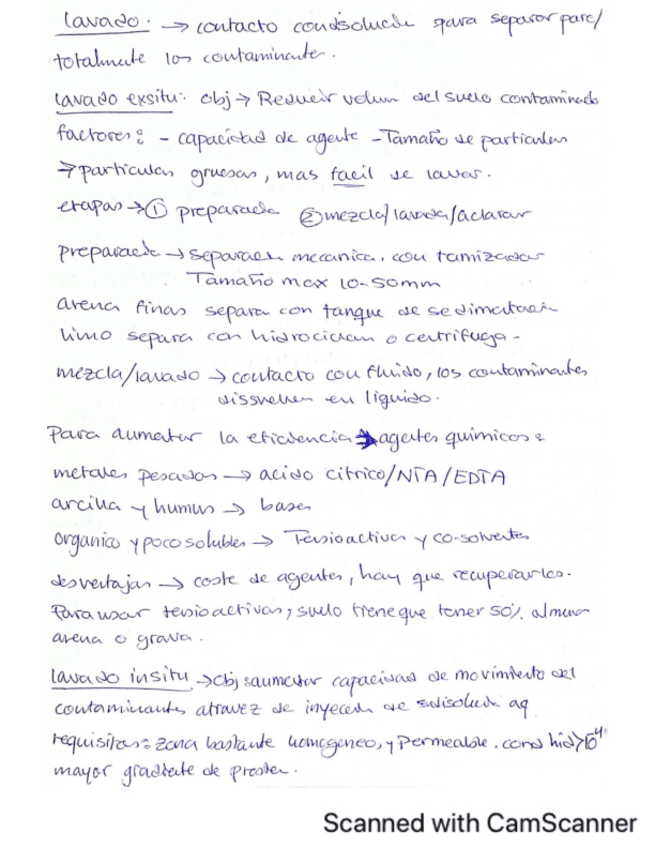 lavado. → contacto con disoluciç para separar parc/
totalmente los contaminante.
lavado exsitu: obj → Reducir volum del suelo contaminado
factores: - capacidad de agente - Tamaño de particulas
→ particulas gruesas, mas facil de lavar.
etapas → ① preparació ② mezcla/lavado/aclarar
preparació → separacion mecanica. con tamizador
Tamaño max 10-50mm
arena finas separa con tanque de sedimentacion
limo separa con hidrociclon o centrifuga -
mezcla/lavado → contacto con fluido, los contaminantes
dissuelven en liquido.
Para aumentar la eficiencia → agentes químicos:
metales pesados → acido citrico/NTA/EDTA
arcilla y humus → bases
organico y poco solubles → Tensioactivos y co-solventes
desventajas → coste de agentes, hay que recuperarlos.
Para usar tensioactivos, suelo tiene que tener 50% al menos
arena o grava.
lavado insitu → obj: aumentar capacidad de movimiento del
contaminantes atravez de inyeccion de disolució aq
requisitos: zona bastante homogeneo, y Permeable. cond hid>10⁻⁴
mayor gradiente de presion.
Scanned with CamScanner